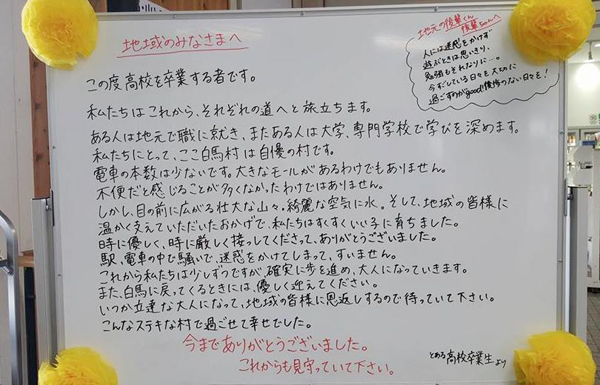 地域のみなさまへ
この度高校を卒業する者です。
私たちはこれから、それぞれの道へと旅立ちます。
ある人は地元で職に就き、またある人は大学、専門学校で学びを深めます。
私たちにとって、ここ白馬村は自慢の村です。
電車の本数は少ないです。大きなモールがあるわけでもありません。
不便だと感じることが多くなかったわけではありません。
しかし、目の前に広がる壮大な山々。綺麗な空気に水。そして、地域の皆様に
温かく支えていただいたおかげで、私たちはすくすくいい子に育ちました。
時に優しく、時に厳しく接してくださって、ありがとうございました。
駅、電車の中で騒いで、迷惑をかけてしまって、すいません。
これから私たちは少しずつですが、確実に歩を進め、大人になっていきます。
また、白馬に戻ってくるときには、優しく迎えてください。
いつか立達な大人になって、地域の皆様に恩返しするので待っていて下さい。
こんなステキな村で過ごせて幸せでした。
今までありがとうございました。
これからも見守っていて下さい。
とある高校卒業生より
地元の後輩くん
後輩ちゃんへ
人には迷惑をかけず
遊ぶときは思いきり、
勉強もそれなりに…。
今すごしている日々を大切に
過ごすのがgood!後悔のない日々を!